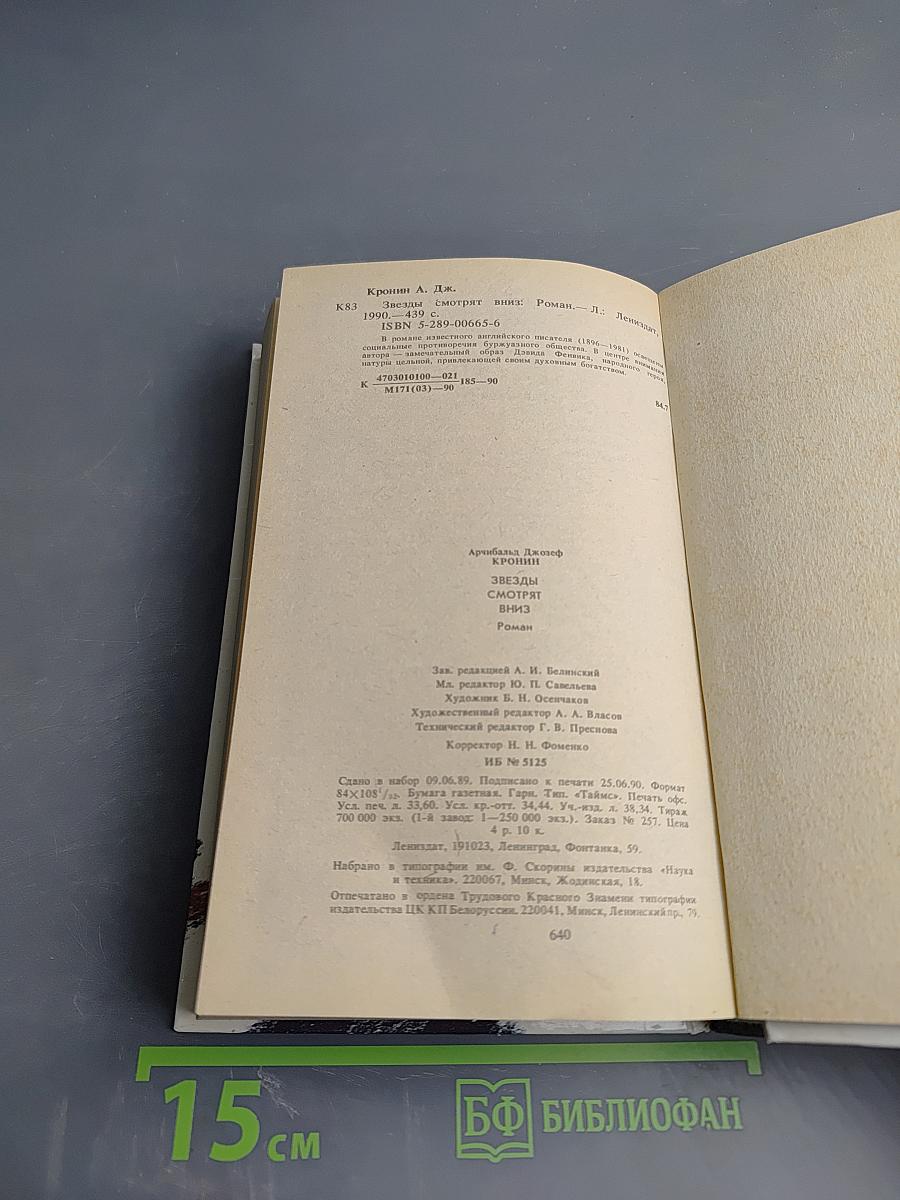 Кронин А. Дж.
К83 Звезды смотрят вниз: Роман.— Л.: Лениздат,
1990.—439 с.
ISBN 5-289-00665-6
В романе известного английского писателя (1896—1981) освещены
социальные противоречия буржуазного общества. В центре внимания
автора — замечательный образ Дэвида Фенвика, народного героя,
натуры цельной, привлекающей своим духовным богатством.
К 4703010100—021 185—90
М171(03)—90
84.7
Арчибальд Джозеф
КРОНИН
ЗВЕЗДЫ
СМОТРЯТ
ВНИЗ
Роман
Зав. редакцией А. И. Белинский
Мл. редактор Ю. П. Савельева
Художник Б. Н. Осенчаков
Художественный редактор А. А. Власов
Технический редактор Г. В. Преснова
Корректор Н. Н. Фоменко
ИБ № 5125
Сдано в набор 09.06.89. Подписано к печати 25.06.90. Формат
84×108¹/₃₂. Бумага газетная. Гарн. Тип. «Таймс». Печать офс.
Усл. печ. л. 33,60. Усл. кр.-отт. 34,44. Уч.-изд. л. 38,34. Тираж
700 000 экз. (1-й завод: 1—250 000 экз.). Заказ № 257. Цена
4 р. 10 к.
Лениздат, 191023, Ленинград, Фонтанка, 59.
Набрано в типографии им. Ф. Скорины издательства «Наука
и техника». 220067, Минск, Жодинская, 18.
Отпечатано в ордена Трудового Красного Знамени типографии
издательства ЦК КП Белоруссии. 220041, Минск, Ленинский пр., 79.
640
15 см
БФ БИБЛИОФАН